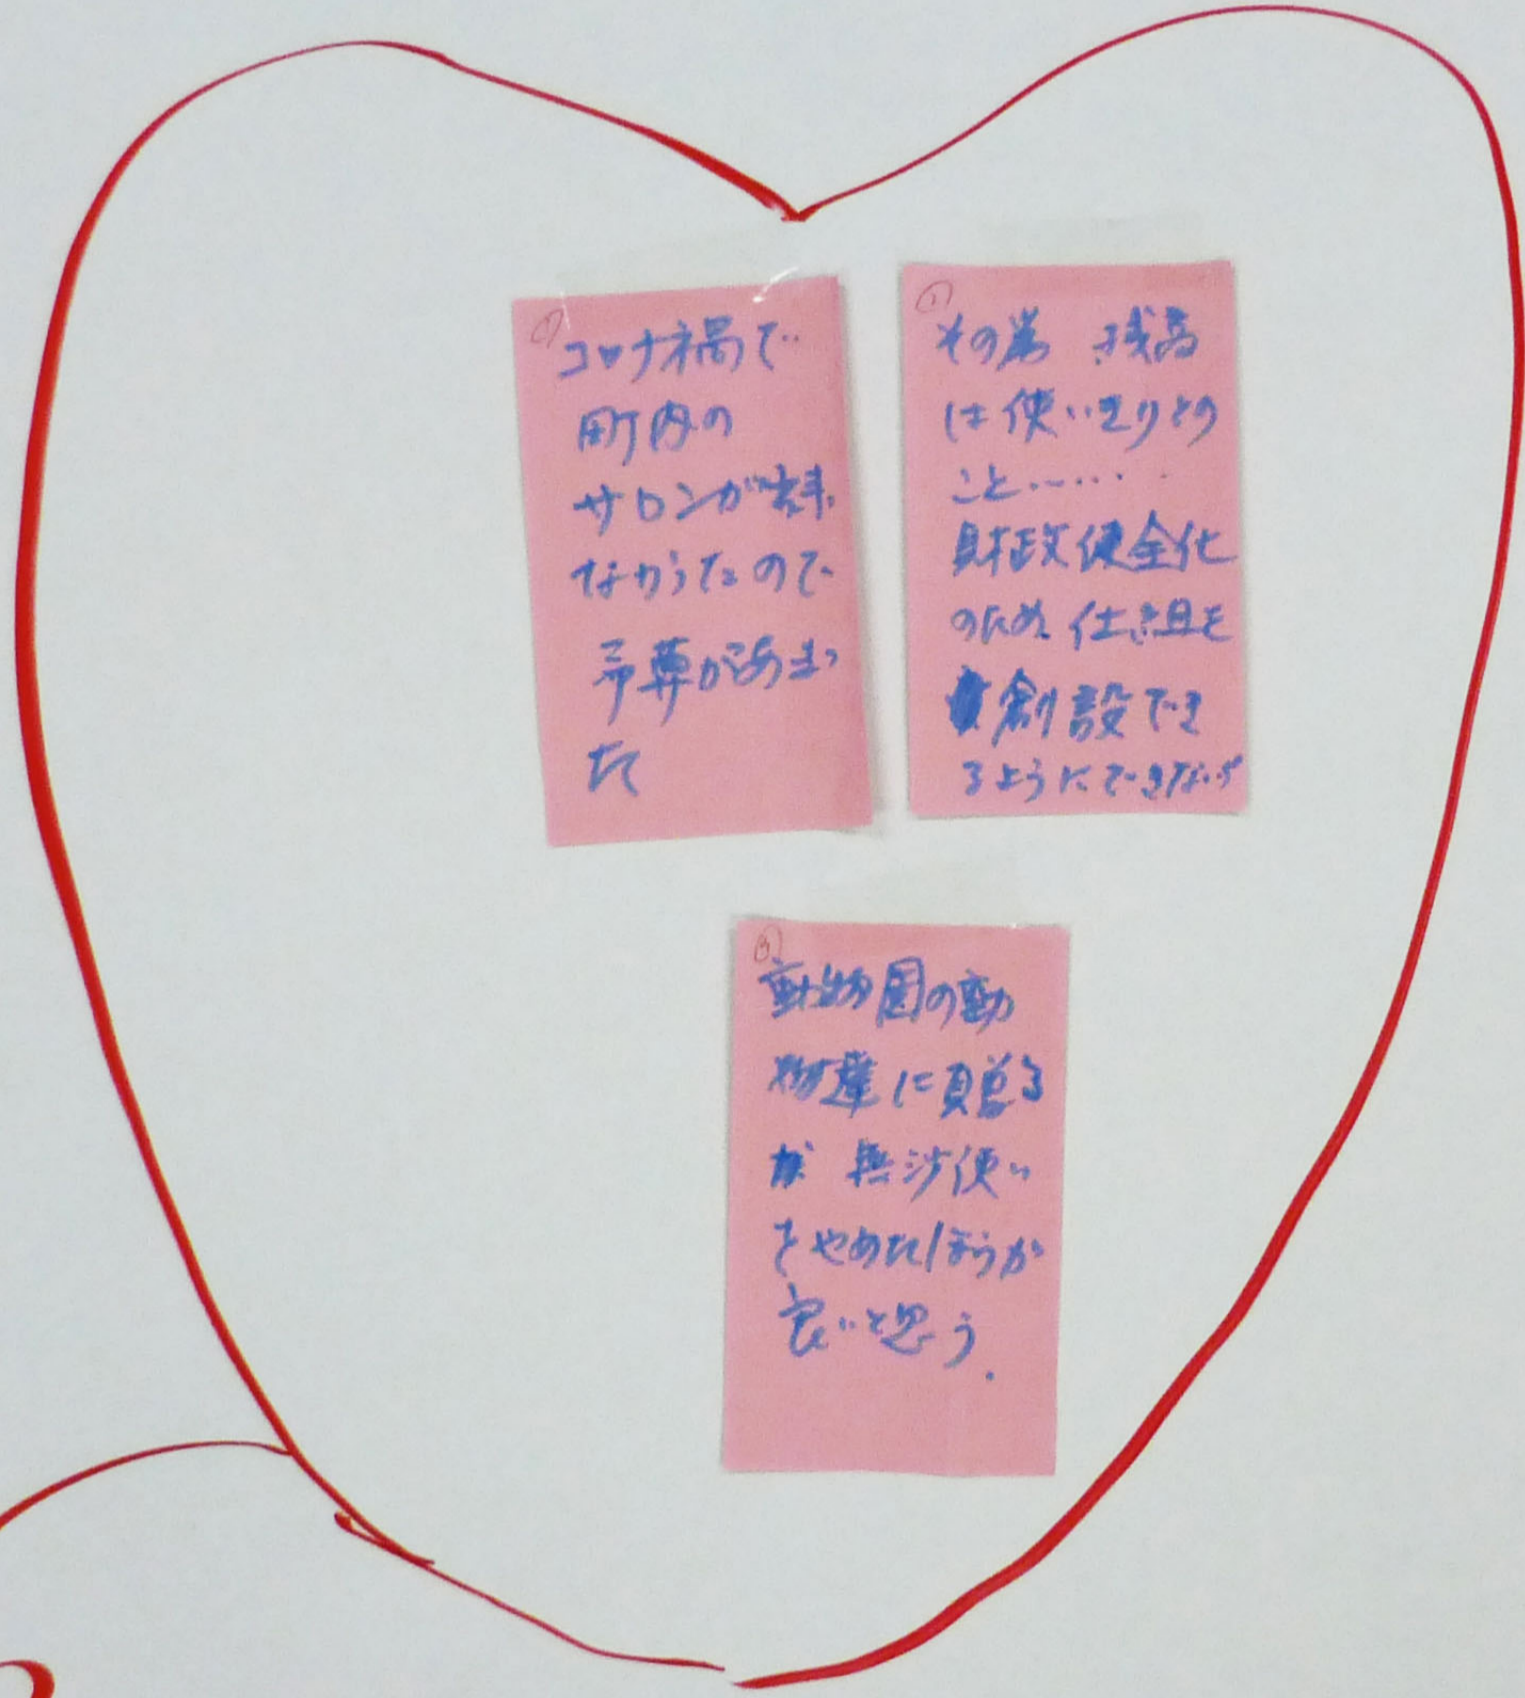 ①
コロナ禍で
町内の
サロンが出来
なかったので
予算があまっ
た
②
その為 残高
は使いきりとの
こと……
財政健全化
のため 仕組を
創設でき
るようにできないか
③
動物園の動
物達に贈る
か 無沙使い
をやめたほうが
良いと思う.